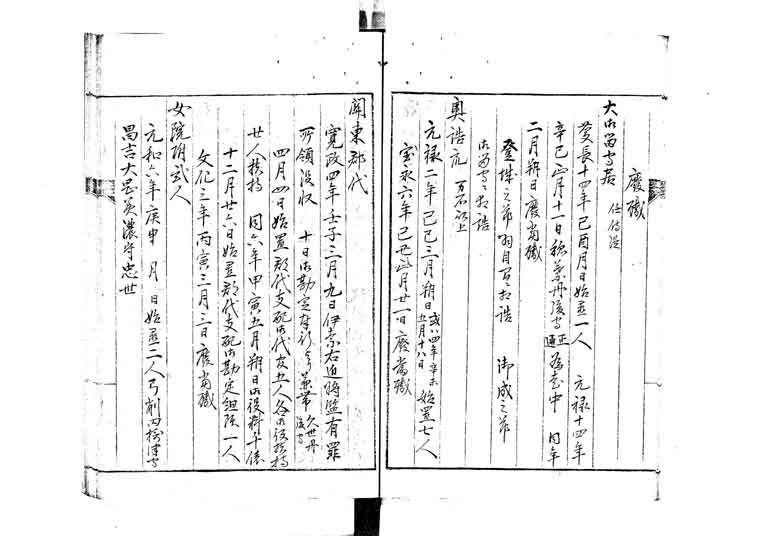 廃職
大御留守居 仕付造
慶長十四年己酉月日始置一人 元禄十四年
辛巳正月十一日稲葉丹後守正通為老中 同年
二月朔日廃当職
登城之節羽目間ニ相詰 御成之節
御留守ニ相詰
奥詰衆 万石以上
元禄二年己巳三月朔日或ハ四年辛未五月十八日始置七人
宝永六年己丑正月廿一日廃当職
関東郡代
寛政四年壬子三月九日伊奈右近将監有罪
所領没収 十日御勘定奉行兼帯久世丹後守
四月四日始置郡代支配御代官五人各御役扶持
廿人扶持 同六年甲寅五月朔日御役料千俵
十二月廿六日始置郡代支配御勘定組頭一人
文化三年丙寅三月三日廃当職
女院附弐人
元和六年庚申 月 日始置二人弓削田摂津守
昌吉大岡美濃守忠世